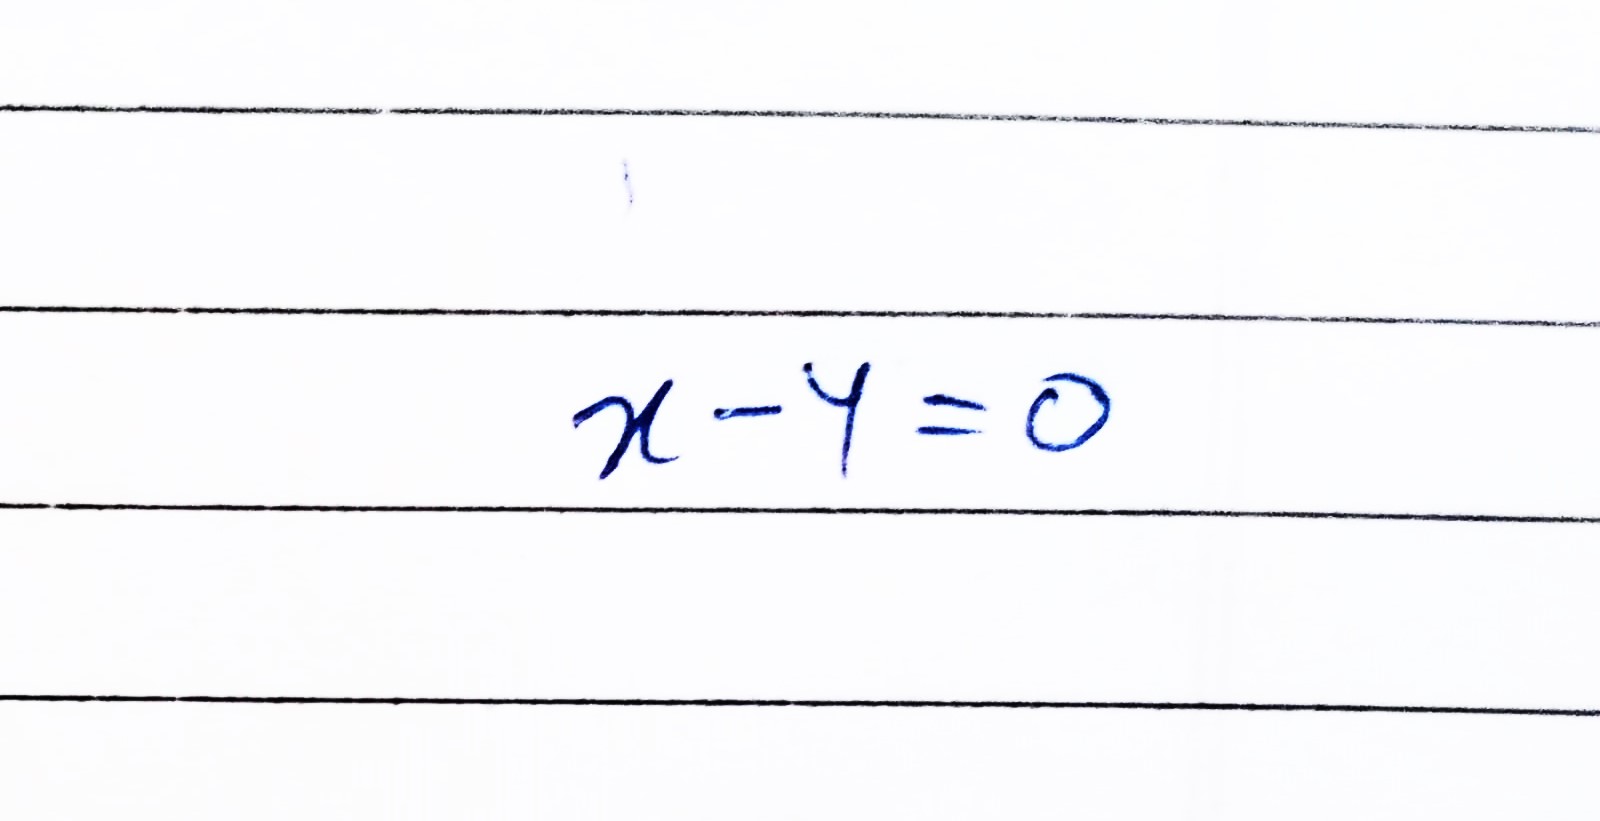 x - y = 0